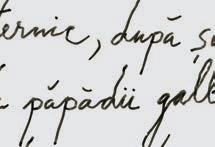 ternic, după
păpădii galb